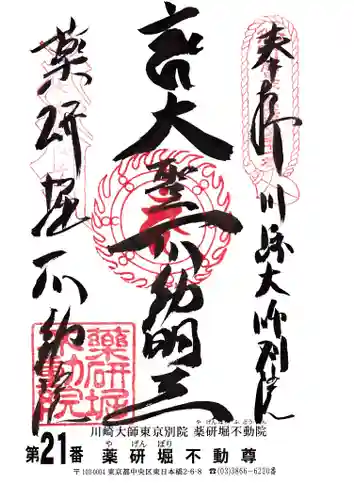 奉拝
川崎大師別院
大聖不動明王
薬研堀不動院
薬研堀
不動院
川崎大師東京別院 薬研堀不動院
や げん ぼり ふ どう いん
第21番 薬研堀不動尊
や げん ぼり
〒103-0004 東京都中央区東日本橋2-6-8 ☎(03)3866-6220番